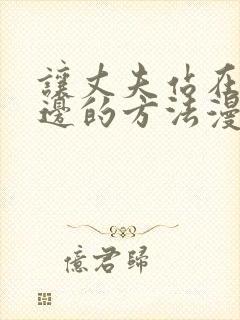 讓丈夫佔在
邊的方法漫
億君歸